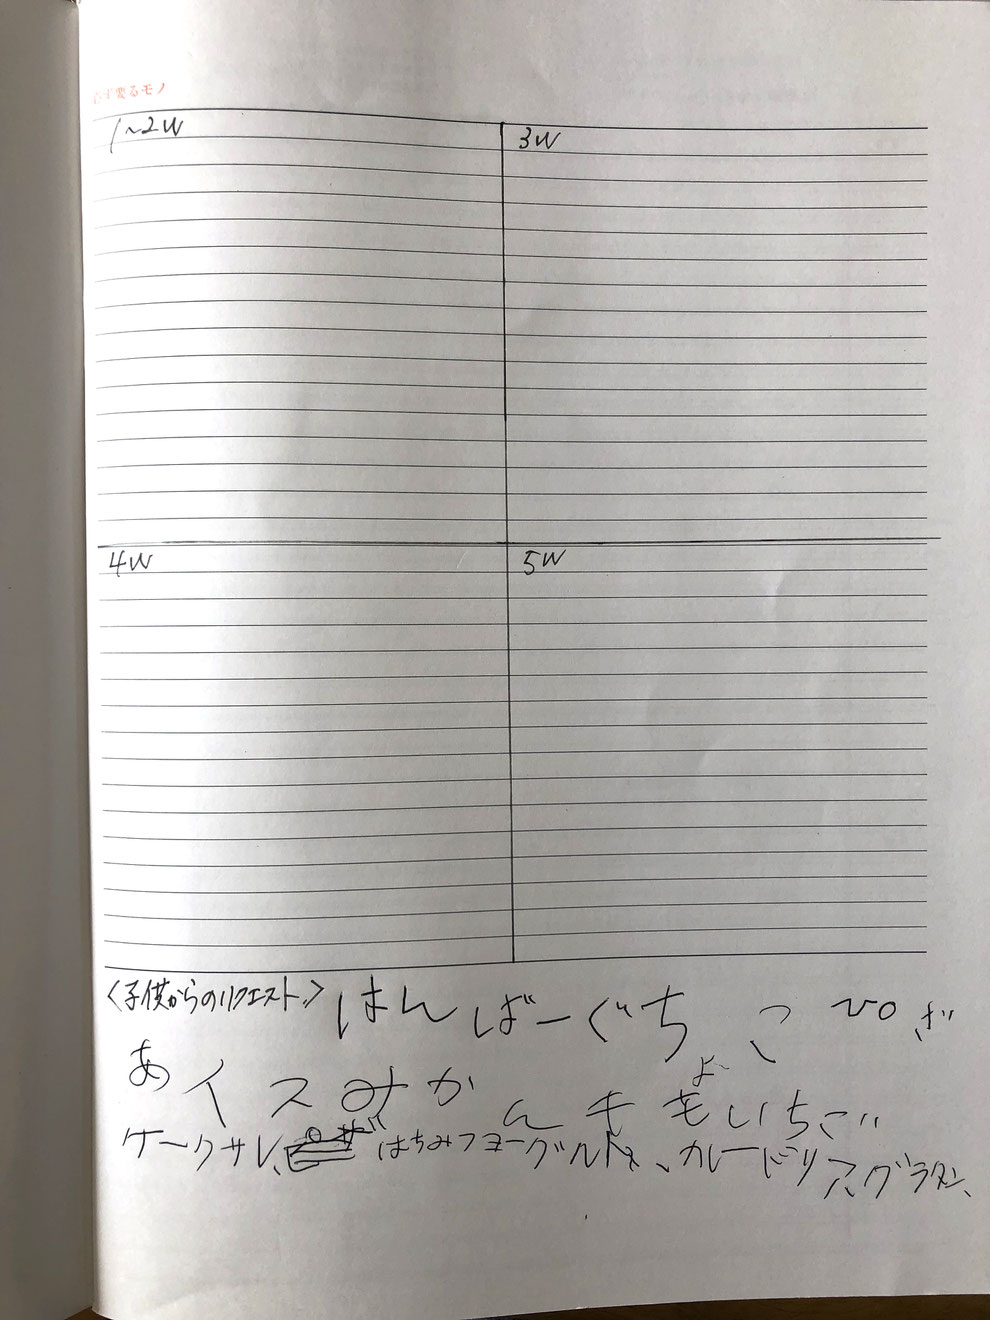 変るモノ
1~2W
3W
4W
5W
〈子供からのリクエスト〉はんばーぐちこぴざ
あイスみかんキもいちご
よー
ケークサレ、はちみつヨーグルト、カレードリア、グラタン、